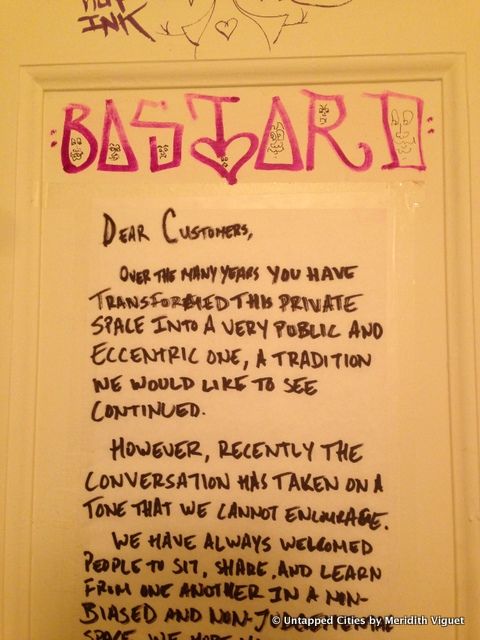 HOT
INK
:BASTARD:
DEAR CUSTOMERS,
OVER THE MANY YEARS YOU HAVE
TRANSFORMED THIS PRIVATE
SPACE INTO A VERY PUBLIC AND
ECCENTRIC ONE, A TRADITION
WE WOULD LIKE TO SEE
CONTINUED.
HOWEVER, RECENTLY THE
CONVERSATION HAS TAKEN ON A
TONE THAT WE CANNOT ENCOURAGE.
WE HAVE ALWAYS WELCOMED
PEOPLE TO SIT, SHARE, AND LEARN
FROM ONE ANOTHER IN A NON-
BIASED AND NON-JUDGEMENTAL
SPACE. WE HOPE
© Untapped Cities by Meridith Viguet